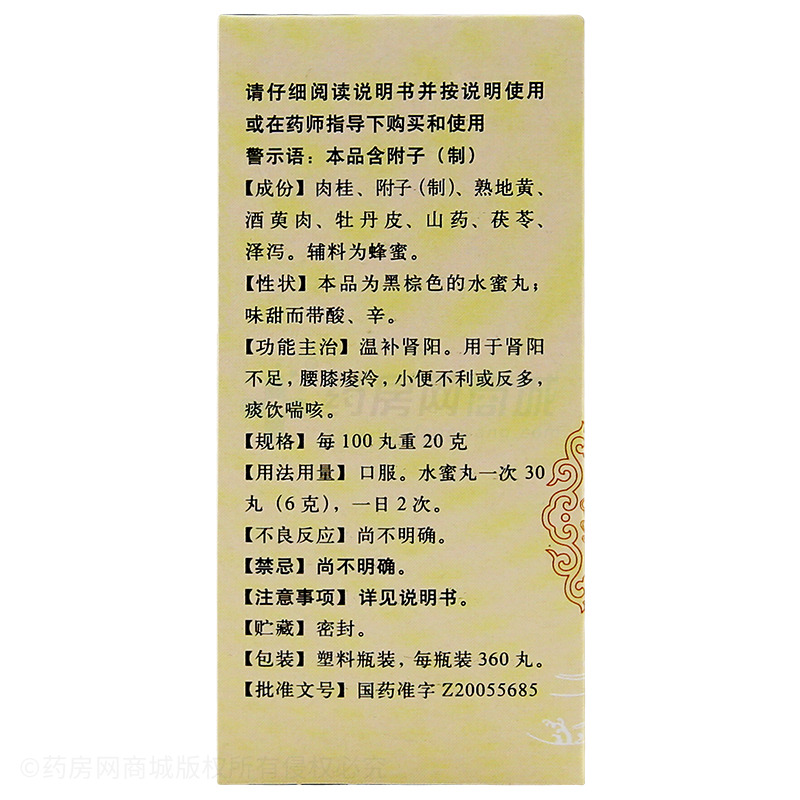 请仔细阅读说明书并按说明使用
或在药师指导下购买和使用
警示语：本品含附子（制）
【成份】肉桂、附子（制）、熟地黄、
酒萸肉、牡丹皮、山药、茯苓、
泽泻。辅料为蜂蜜。
【性状】本品为黑棕色的水蜜丸；
味甜而带酸、辛。
【功能主治】温补肾阳。用于肾阳
不足，腰膝痠冷，小便不利或反多，
痰饮喘咳。
【规格】每100丸重20克
【用法用量】口服。水蜜丸一次30
丸（6克），一日2次。
【不良反应】尚不明确。
【禁忌】尚不明确。
【注意事项】详见说明书。
【贮藏】密封。
【包装】塑料瓶装，每瓶装360丸。
【批准文号】国药准字Z20055685
药房网商城
©药房网商城版权所有侵权必究